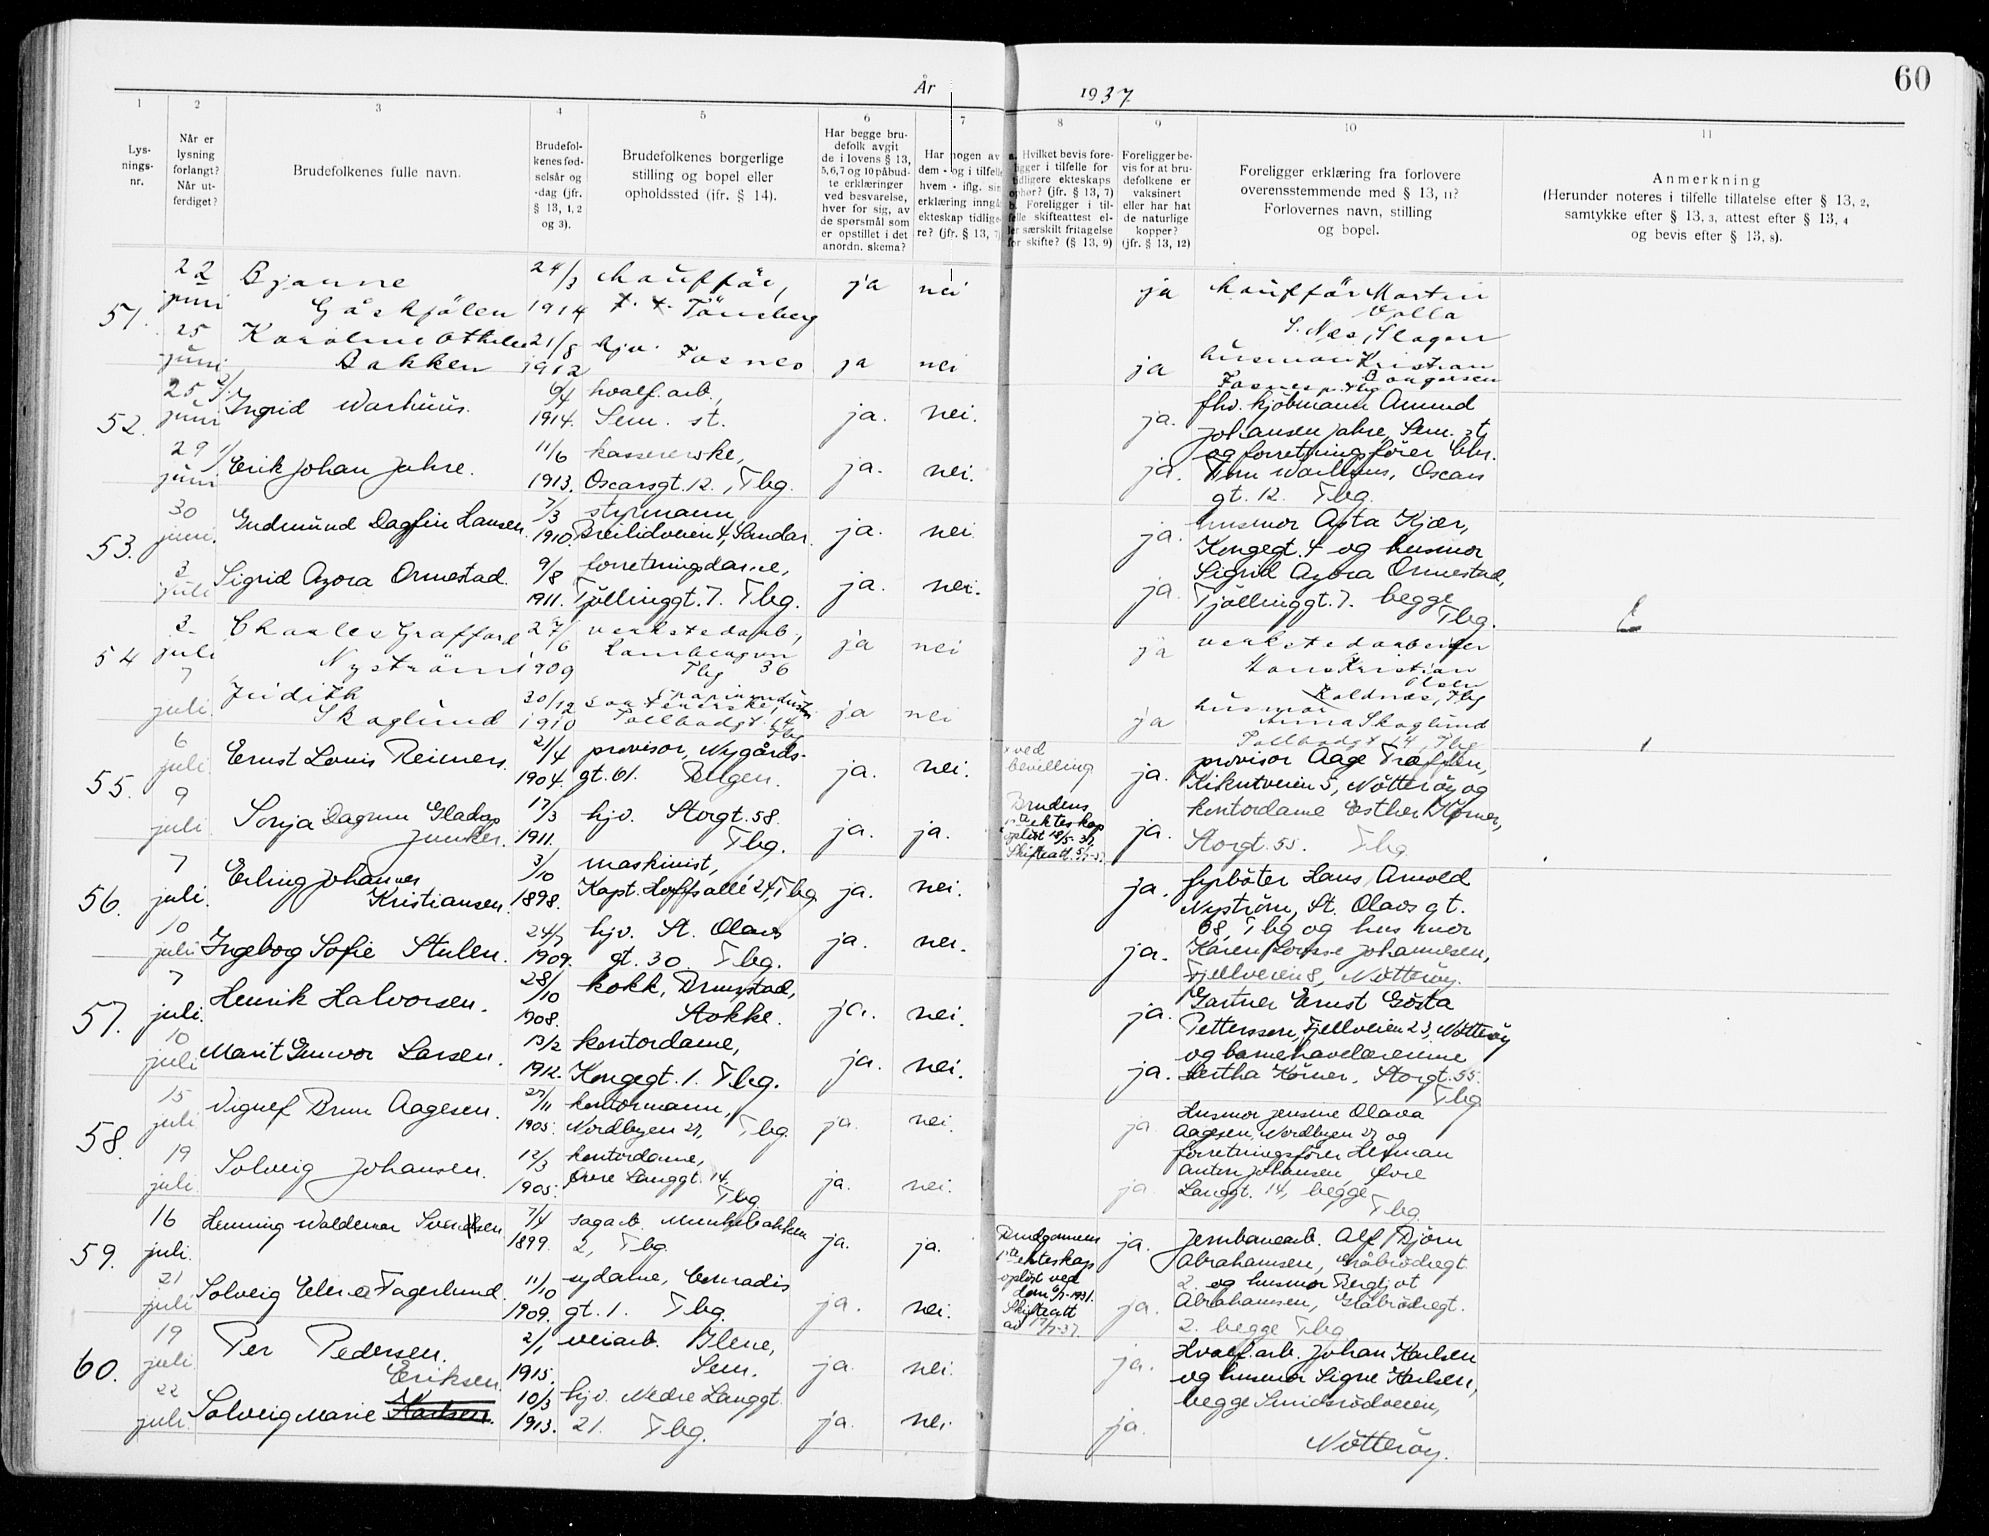 60
År 1937
1 2 3 4 5 6 7 8 9 10 11
Lys-
nings-
nr.
Når er
lysning
forlangt?
Når ut-
ferdiget?
Brudefolkenes fulle navn.
Brudefol-
kenes fød-
selsår og
-dag (jfr.
§ 13, 1, 2
og 3).
Brudefolkenes borgerlige
stilling og bopel eller
opholdssted (jfr. § 14).
Har begge bru-
defolk avgit
de i lovens § 13,
5, 6, 7 og 10 påbud-
te erklæringer
ved besvarelse,
hver for sig, av
de spørsmål som
er opstillet i det
anordn. skema?
Har nogen av
dem - og i tilfelle
hvem - iflg. sin
erklæring inngå
ekteskap tidlige-
re? (jfr. § 13, 7)
a. Hvilket bevis fore-
ligger i tilfelle for
tidligere ekteskaps
ophør? (jfr. § 13, 7)
b. Foreligger i til-
felle skifteattest el-
ler særskilt fritagelse
for skifte? (§ 13, 9)
Foreligger be-
vis for at bru-
defolkene er
vaksinert
eller har hat
de naturlige
kopper?
(jfr. § 13, 12)
Foreligger erklæring fra forlovere
overensstemmende med § 13, 11?
Forlovernes navn, stilling
og bopel.
Anmerkning
(Herunder noteres i tilfelle tillatelse efter § 13, 2,
samtykke efter § 13, 3, attest efter § 13, 4
og bevis efter § 13, 8).
51.
22
juni
Bjarne
Gåskjølen
24/3
1914
chauffør,
Tönsberg
ja nei ja
chauffør Martin
Valla
S. Nes, Slagen
25
juni
Karoline Othelie
Bakken
21/8
1912
hjv. Fosnes
ja nei ja
husmor Kristian
52.
25
juni
Ingrid Warhuus.
6/4
1914.
hvalf. arb.,
Sem. st.
ja. nei. ja.
fhv. kjöbmann Amund
Johansen Jahre, Sem. st
29
juni
Erik Johan Jahre.
11/6
1913.
kassererske,
Oscarsgt. 12., Tbg.
ja. nei. ja.
og forretningsfører Chr.
Warhuus, Oscars
gt. 12. Tbg.
53.
30
juni.
Gudmund Dagfin Hansen.
7/3
1910.
styrmann,
Breilidveien 4, Sandar.
ja. nei. ja.
husmor Asta Kjær,
Kongegt. 4 og husmor
3
juli
Sigrid Azora Ormestad.
9/8
1911.
forretningsdame,
Tjøllinggt. 7. Tbg.
ja. nei. ja.
Sigrid Azora Ormestad,
Tjøllinggt. 7. begge
Tbg.
54
3
juli
Charles Grafford
Nyström
27/6
1909
verkstedarb.,
Tbg 36
ja nei ja
verkstedarbeider
Hans Kristian
Olsen
Kaldnæs, Tbg
7
juli.
Judith
Skoglund
20/12
1910
Tollbodgt. 14
Tbg
ja nei ja
husmor
Anna Skoglund
Tollbodgt 14, Tbg
55.
6
juli
Ernst Louis Reimers.
21/4
1904.
provisor, Nygårds-
gt. 61. Bergen.
ja. nei.
ved
bevilling
ja.
provisor Aage Træffen,
Kikutveien 5, Nötteröy og
9
juli
Sonja Dagrun Gladys
Juncker.
17/3
1911.
hjv. Storgt. 58.
Tbg.
ja. ja.
Brudens
1ste ekteskap
opløst 18/5-37,
Skifteatt. 5/7-37.
ja.
kontordame Esther Körner,
Storgt. 55. Tbg.
56.
7
juli.
Erling Johannes
Kristiansen.
3/10
1898.
maskinist,
Kapt. Hoffs allé 24, Tbg
ja. nei. ja.
fyrböter Hans Arnold
Nyström, St. Olavs gt.
10
juli
Ingebog Sofie Stulen.
24/7
1909.
hjv. St. Olavs
gt. 30. Tbg.
ja. nei. ja.
68, Tbg og husmor
Karen Lovise Johannesen,
Fjellveien 8, Nötteröy.
57.
7
juli.
Henrik Halvorsen.
28/10
1908.
kokk, Brunstad,
Stokke.
ja. nei. ja.
Gartner Ernst Gösta
Pettersson, Fjellveien 23, Nötteröy
10
juli
Marit Gunvor Larsen.
13/2
1912.
kontordame,
Kongegt. 1. Tbg.
ja. nei. ja.
og barnehavelærerinne
Hertha Körner, Storgt. 55.
Tbg
58.
15
juli
Vignef Brun Aagesen.
27/11
1905.
kontormann,
Nordbyen 27, Tbg.
ja. nei. ja.
Husmor Jensine Olava
Aagesen, Nordbyen 27 og
19
juli.
Solveig Johansen.
12/3
1905.
kontordame,
Övre Langgt. 14.
Tbg.
ja. nei. ja.
forretningsfører Herman
Anton Johansen, Övre
Langgt. 14, begge
Tbg.
59.
16
juli.
Henning Waldemar Svendsen
7/4
1899.
sagarb. Munkebakken
2, Tbg.
ja. ja.
Brudgommens
1ste ekteskap
opløst ved
dom 6/7-1931.
Skifteatt
av 17/7-37.
ja.
Jernbanearb. Alf Bjørn
Abrahamsen, Gråbrödregt.
21
juli
Solveig Elena Fagerlund.
11/10
1909.
sydame, Conradis
gt. 1. Tbg.
ja. nei. ja.
2. og husmor Bergljot
Abrahamsen, Gråbrödregt.
2. begge Tbg
60.
19
juli.
Per Pedersen.
2/1
1915.
veiarb. Ilene,
Sem.
ja. nei. ja.
Hvalf. arb. Johan Karlsen
og husmor Signe Karlsen,
22
juli.
Eriksen
Solveig Marie Karlsen.
10/3
1913.
hjv. Nedre Langgt.
21. Tbg.
ja. nei. ja.
begge Smidsrödveien,
Nötteröy.